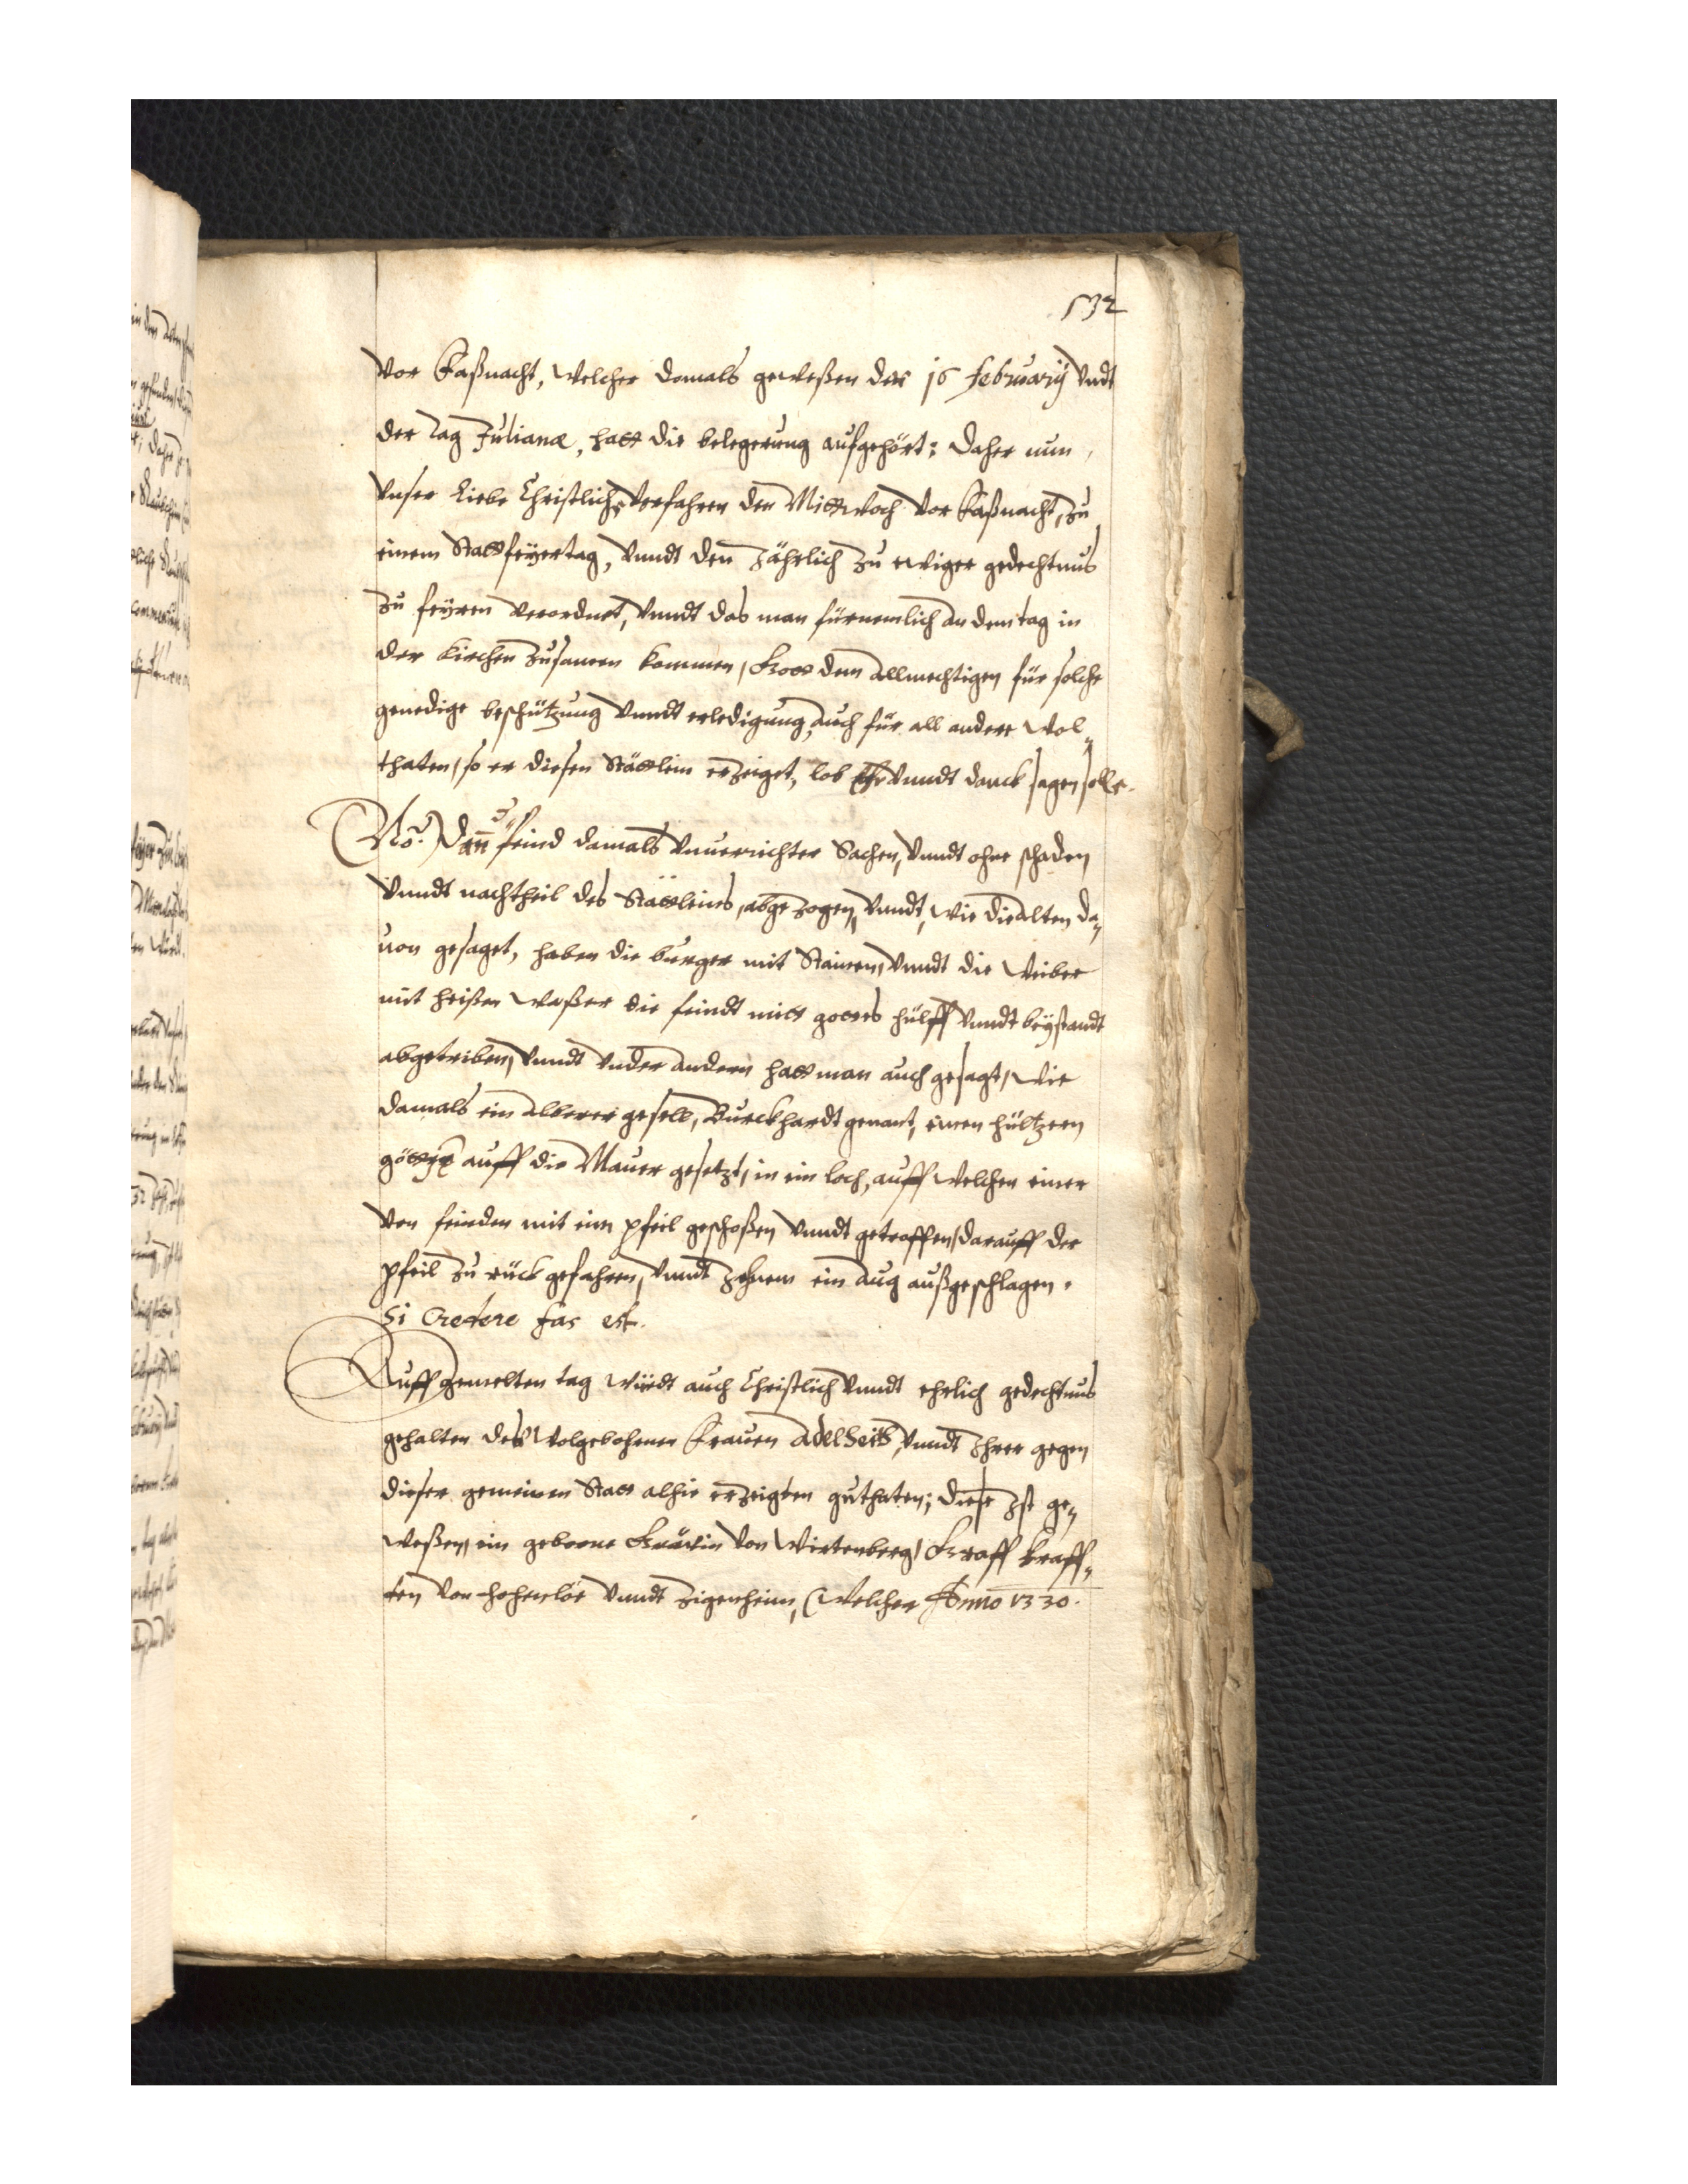 132
vor Faßnacht, welcher domals geweßen der 16 february vndt
der tag Julianæ, hatt die belegerung aufgehört: Daher nun
vnser liebe Christliche vorfahren den Mittwoch vor Faßnacht, zu
einem Stattfeÿertag, vnndt den Jährlich zu ewiger gedechtnus
zu feÿren verordnet, vnndt das man fürnemlich an dem tag in
der Kirchen zusamen kommen, Gott dem Allmechtigen für solche
genedige beschützung vnndt erledigung, auch für all andere wol„
thaten, so er diesen Stättlein erzeiget, lob Ehr vnndt danck sagen solle.
No: Dan feind damals vnuerrichter Sachen, vnndt ohne schaden
vnndt nachtheil des Stättleins, abgezogen, vnndt, wie die Alten da„
uon gesaget, haben die burger mit Stainen, vnndt die Weiber
mit heißen waßer die feindt mitt gottes hülff vnndt beÿstandt
abgetriben, vnndt vnder andern hatt man auch gesagt, wie
damals ein alberer gesell, Burckhardt genant, einen hültzern
auff die Mauer gesetzt, in ein loch, auff welchen einer
von feinden mit einn pfeil geschoßen vnndt getroffen, darauff der
pfeil zu rück gefahren, vnndt Jehnem ein Aug außgeschlagen.
Si Credere fas est.
Auff gemelten tag würdt auch Christlich vnndt ehrlich gedechtnus
gehalten des wolgebohrnen Frauen Adelheit, vnndt Ihrer gegen
dieser gemeinen Statt alhie erzeigten guthaten; diese Ist ge„
weßen, ein geborne Grävin von Wirtenberg, Graff Kraff„
ten von Hohenloe vnndt Zigenheim, (welcher Anno 1330.